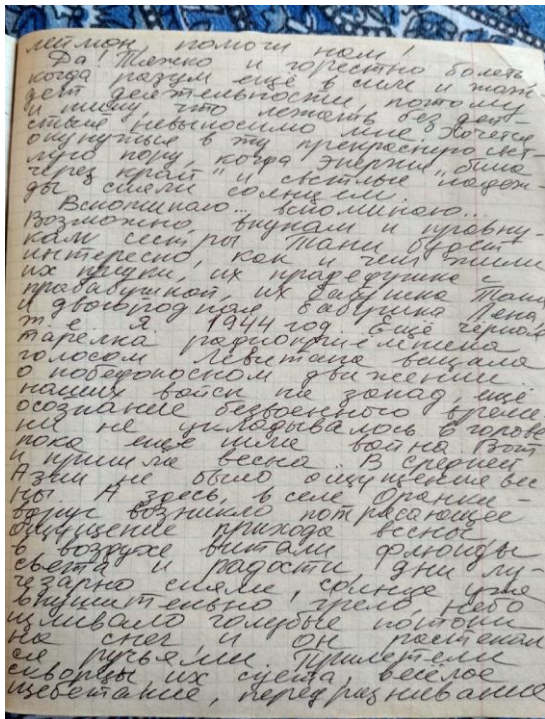 леймон, помоги нам!
Да! Тяжко и горестно болеть,
когда разум ещё в силе и жаж-
дет деятельности, потому
и пишу, что лежать без дей-
ствия невыносимо мне. Хочется
окунуться в ту прекрасную свет-
лую пору, когда энергия „била
через край" и светлые надеж-
ды сияли солнцем.
Вспоминаю... вспоминаю...
Возможно, внукам и правну-
кам сестры Тани будет
интересно, как и чем жили
их предки, их прадедушка с
прабабушкой, их бабушка Таня
и двоюродная бабушка Лена,
т. е. я. 1944 год. Ещё чёрная
тарелка радиоприёмника
голосом Левитана вещала
о победоносном движении
наших войск на запад, ещё
осознание безвоенного време-
ни не укладывалось в голове
пока ещё шла война. Вот
и пришла весна. В Средней
Азии не было ощущения вес-
ны. А здесь, в селе Оранки -
вдруг возникло потрясающее
ощущение прихода весны
в воздухе витали флюиды
света и радости дни лу-
чезарно сияли, солнце уже
внушительно грело небо
изливало голубые потоки
на снег и он растекал
ся ручьями. Прилетели
скворцы их суета, весёлое
щебетание, передразнивание